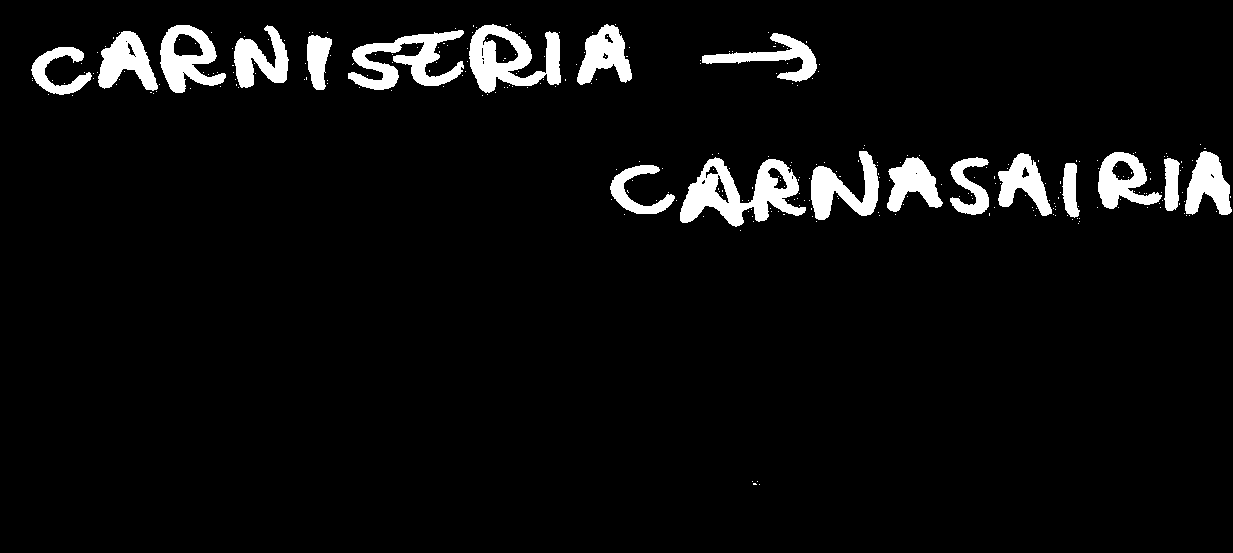 CARNISERIA →
CARNASAIRIA